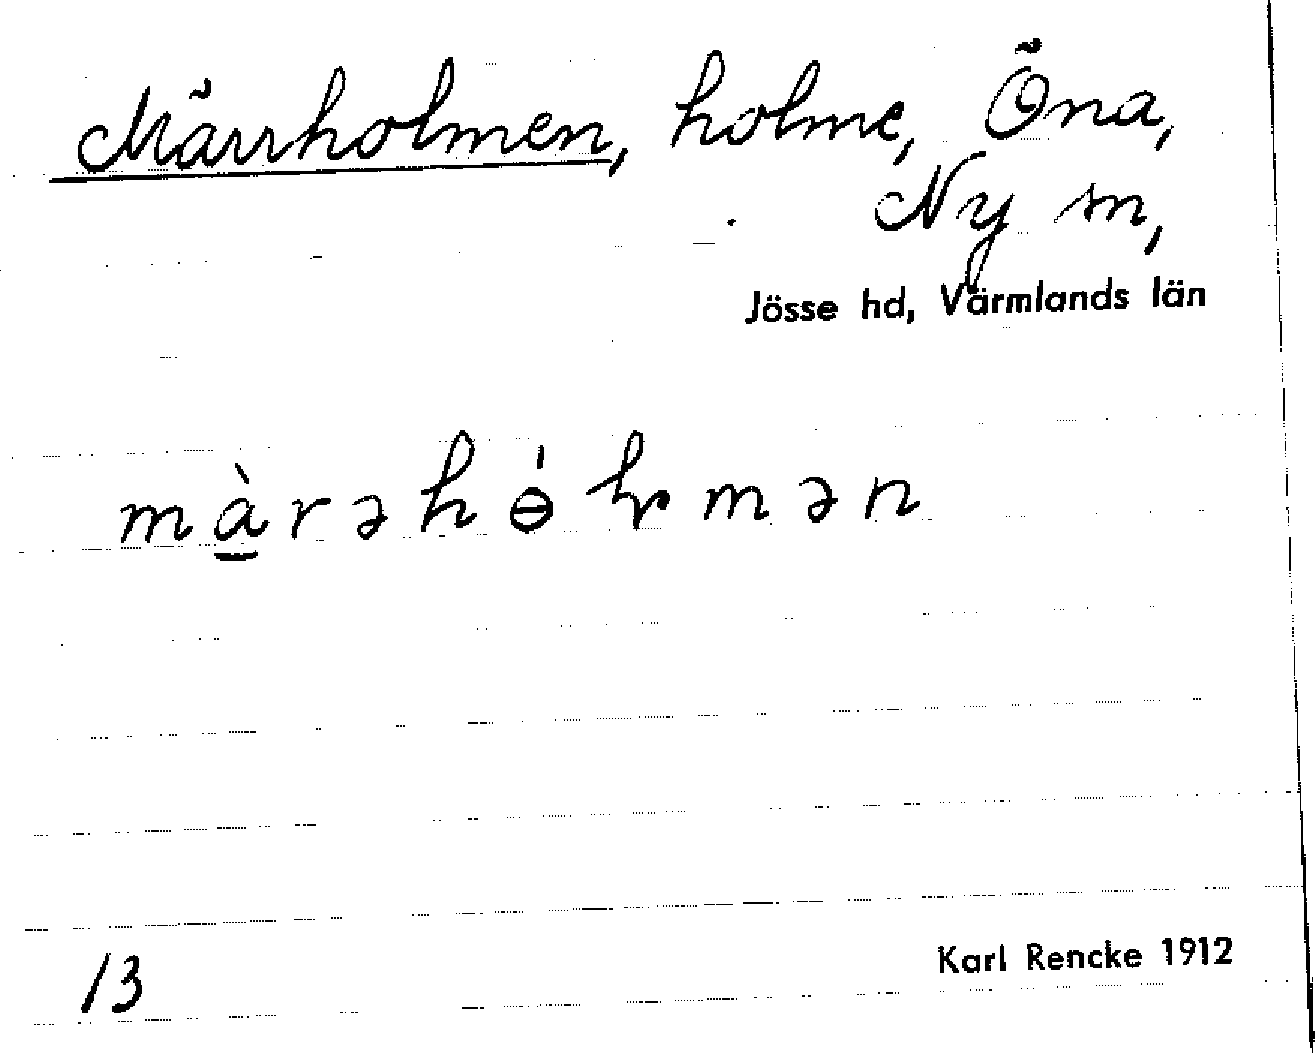 Märrholmen, holme, Öna,
Ny sn,
Jösse hd, Värmlands län
màrəhɵ́lmən
13
Karl Rencke 1912